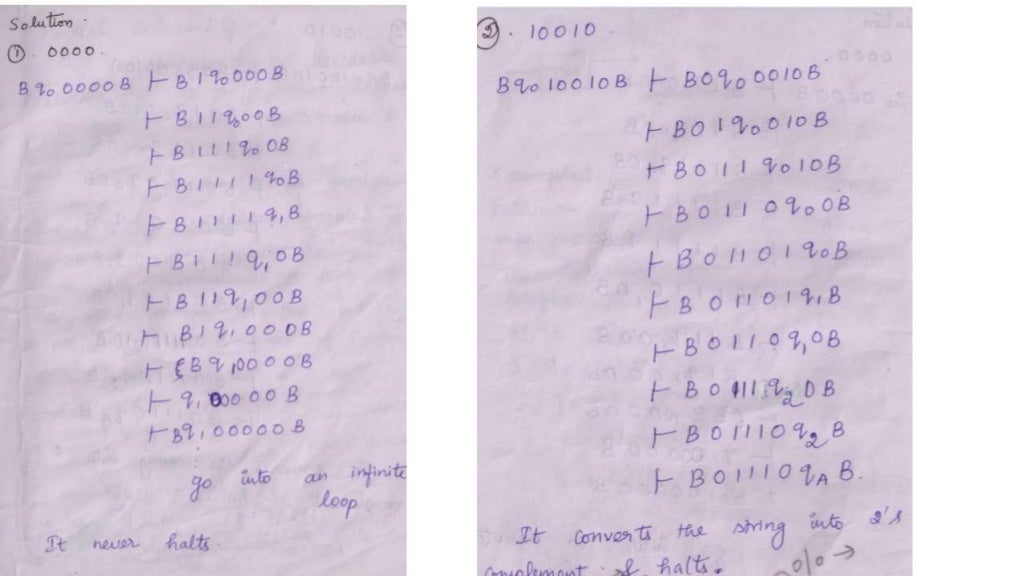 Solution.
① . 0000.
Bq₀0000B ⊢ B1q₀000B
⊢ B11q₀00B
⊢ B111q₀0B
⊢ B1111q₀B
⊢ B1111q₁B
⊢ B111q₁0B
⊢ B11q₁00B
⊢ B1q₁000B
⊢ Bq₁0000B
⊢ q₁00000B
⊢ Bq₁00000B
go into an infinite
loop
It never halts.
② . 10010.
Bq₀10010B ⊢ B0q₀0010B
⊢ B01q₀010B
⊢ B011q₀10B
⊢ B0110q₀0B
⊢ B01101q₀B
⊢ B01101q₁B
⊢ B0110q₁0B
⊢ B0111q₂0B
⊢ B01110q₂B
⊢ B01110qₐB.
It converts the string into 2's
complement & halts.